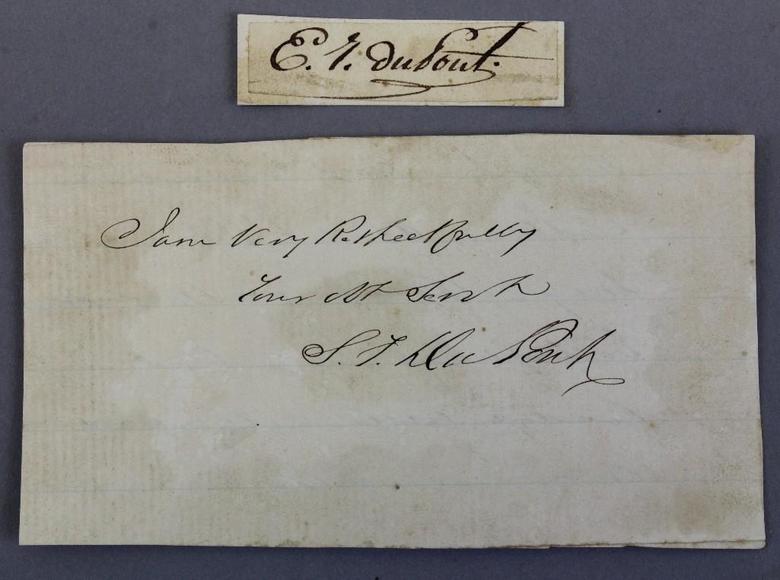 E. I. duPont.
I am Very Respectfully
Your Obt Servt
S. F. Du Pont